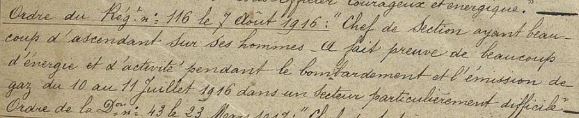 Officier courageux et énergique."
Ordre du Rég.t n.o 116 le 7 Août 1916 : "Chef de Section ayant beau-
coup d'ascendant sur ses hommes - A fait preuve de beaucoup
d'énergie et d'activité pendant le bombardement et l'émission de
gaz du 10 au 11 Juillet 1916 dans un secteur particulièrement difficile"
Ordre de la D.on n.o 43 le 23 Mars 1917 : "Chef de